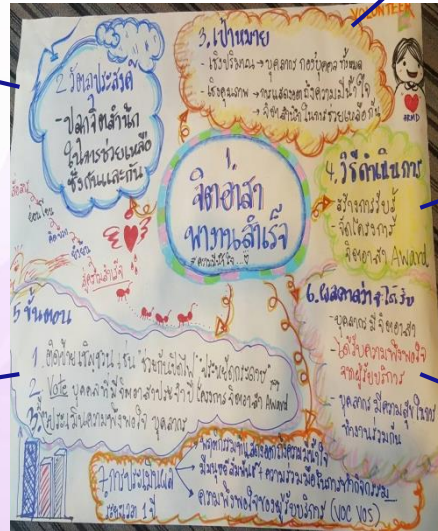 VOLUNTEER
1.
จิตอาสา
พางานสำเร็จ
2. วัตถุประสงค์
- ปลูกจิตสำนึก
ในการช่วยเหลือ
ซึ่งกันและกัน
3. เป้าหมาย
- เชิงปริมาณ → บุคลากร กองบุคคล ทั้งหมด
- เชิงคุณภาพ → การแสดงออกถึงความมีน้ำใจ
→ จิตสำนึกในการช่วยเหลือกัน
4. วิธีดำเนินการ
- สร้างการรับรู้
- จัดโครงการ
จิตอาสา Award
5 ขั้นตอน
1. ติดป้ายเชิญชวน เช่น "ช่วยกันปิดไฟ" "ประหยัดกระดาษ"
2. Vote บุคคลที่มีจิตอาสาประจำปี โครงการ จิตอาสา Award
3. ประเมินความพึงพอใจ บุคลากร
6. ผลคาดว่าจะได้รับ
- บุคลากร มีจิตอาสา
- ได้รับความพึงพอใจ
จากผู้รับบริการ
- บุคลากร มีความสุขในการ
ทำงานร่วมกัน
7. การประเมินผล
ระยะเวลา 1 ปี
พฤติกรรมที่แสดงออกถึงความมีน้ำใจ
มีมนุษย์สัมพันธ์ + ความร่วมมือในการทำกิจกรรม
ความพึงพอใจของผู้รับบริการ (VOC VOS)